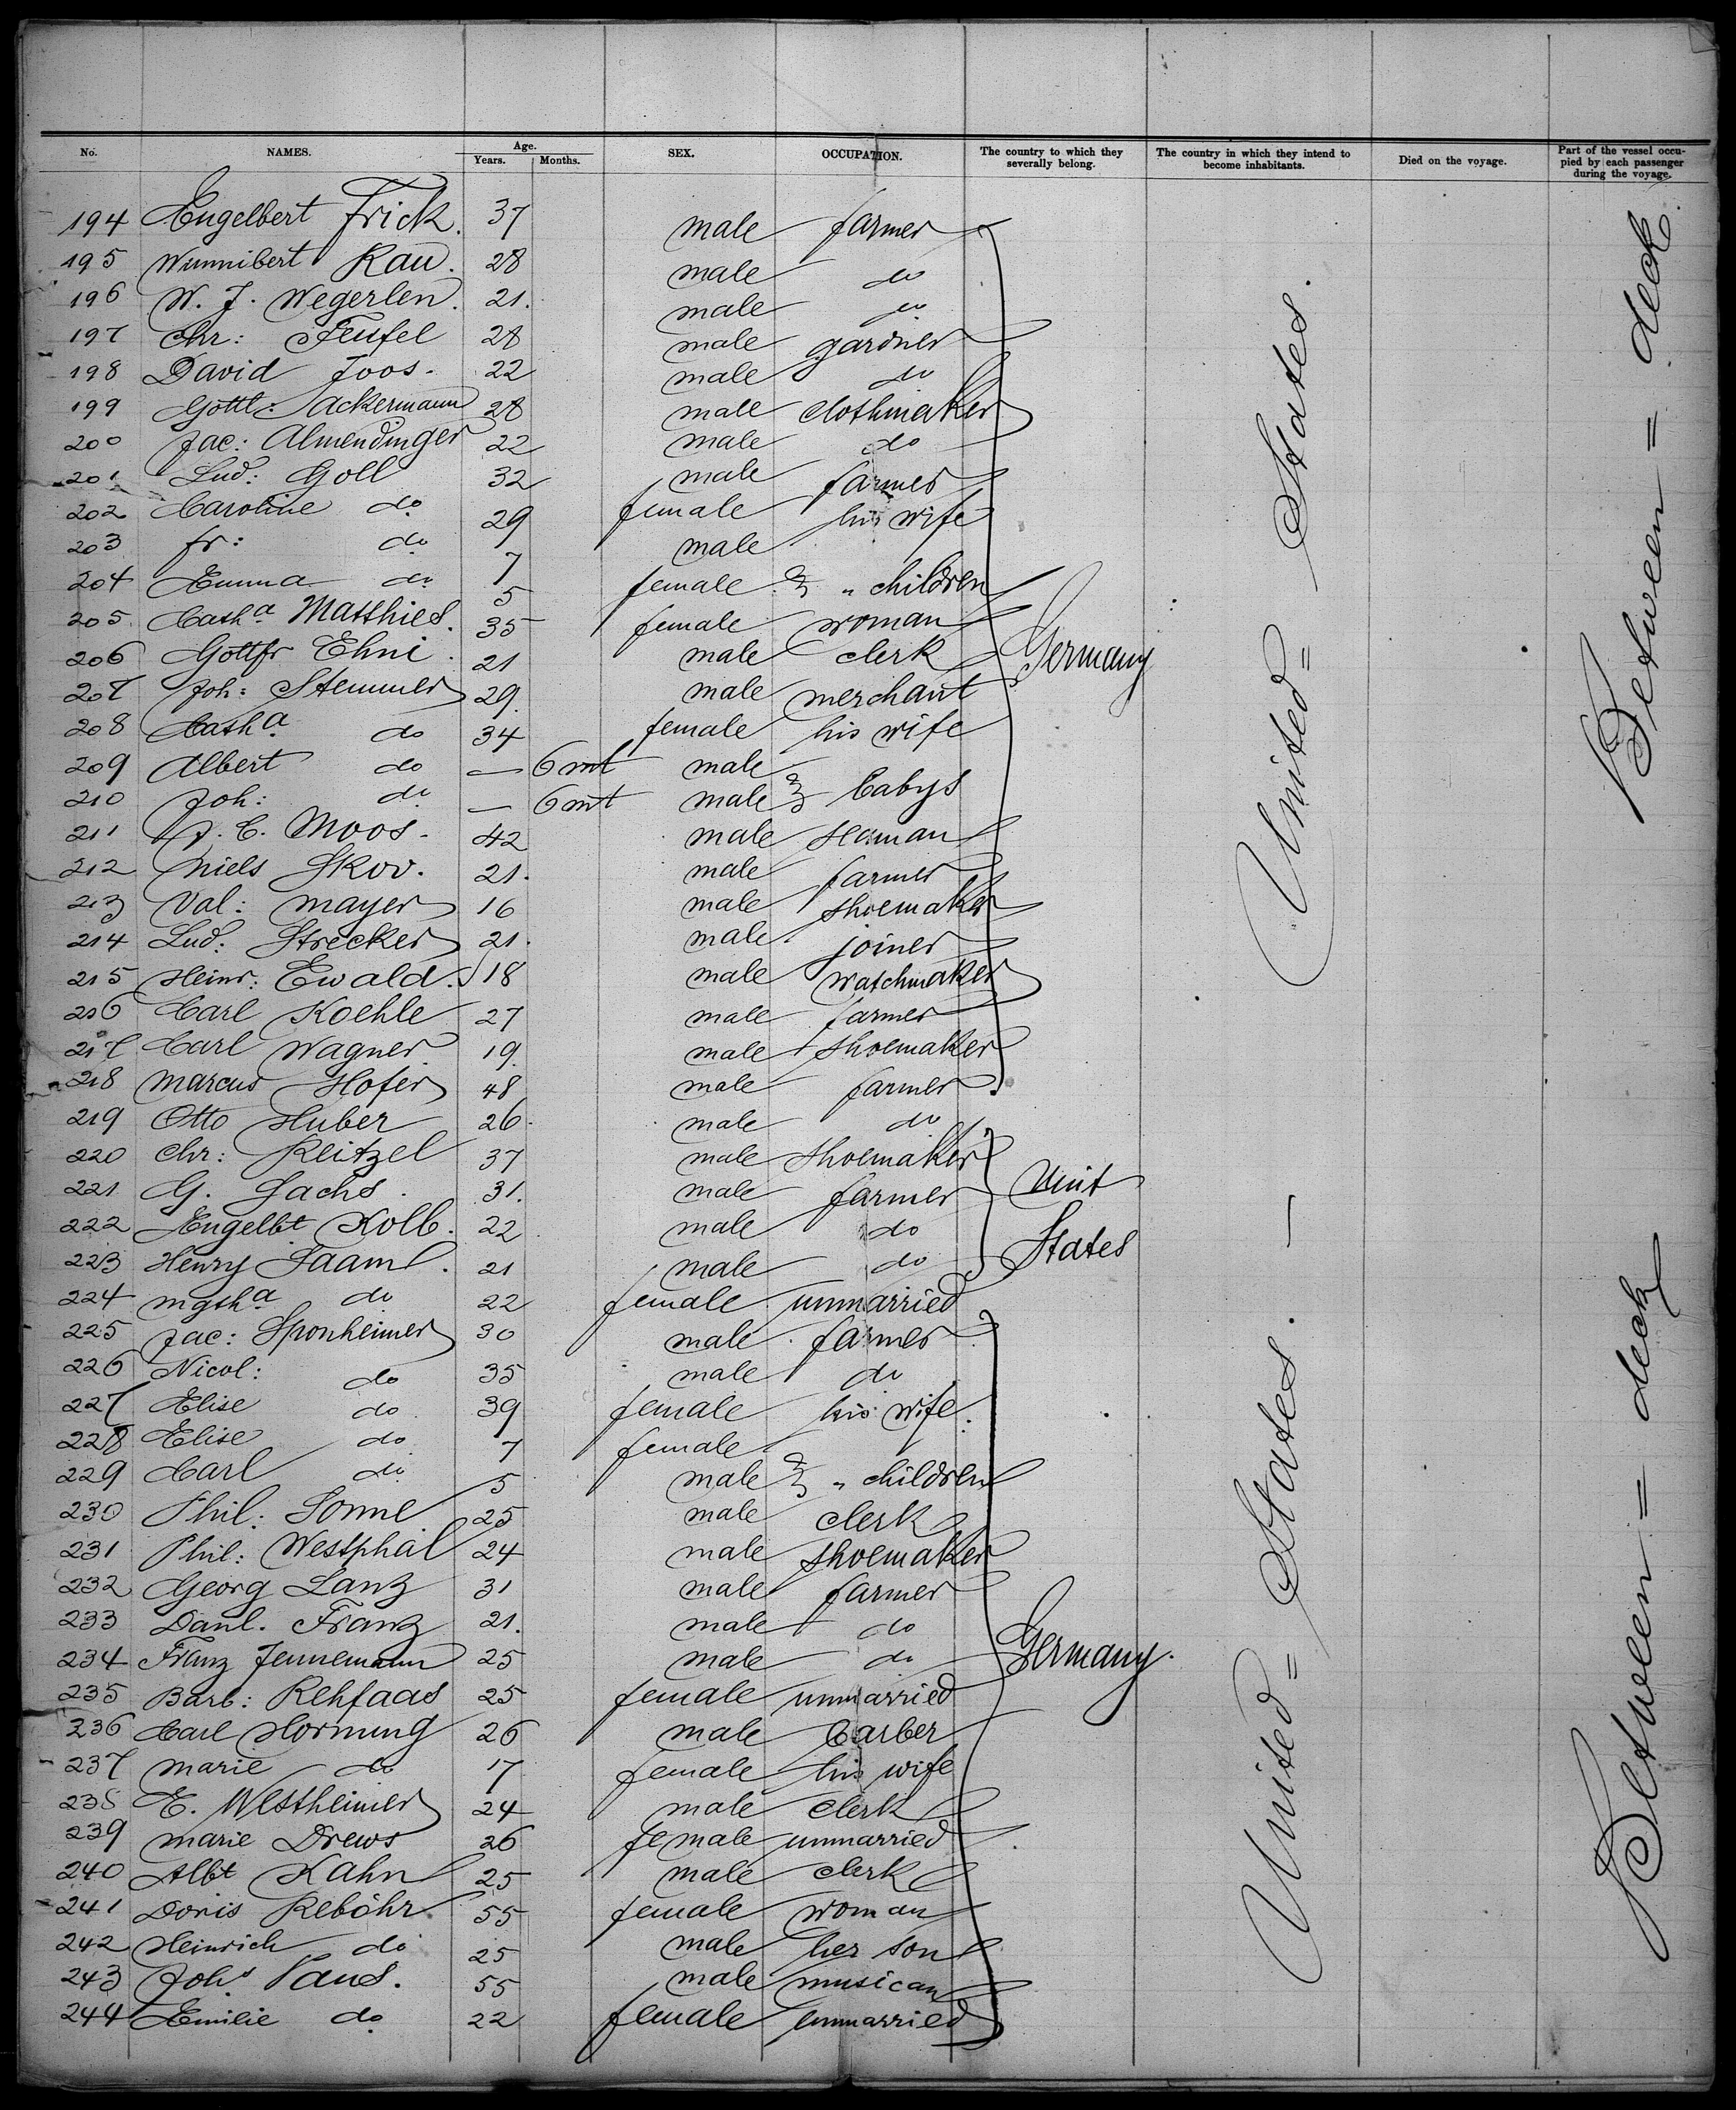 No. NAMES. Age. Years. Months. SEX. OCCUPATION. The country to which they severally belong. The country in which they intend to become inhabitants. Died on the voyage. Part of the vessel occupied by each passenger during the voyage.
194 Engelbert Frick. 37 male farmer
195 Wunnibert Rau. 28 male do
196 W. J. Wegerlen. 21. male do
197 Chr: Teufel 28 male gardner
198 David Joos. 22 male do
199 Gottl: Ackermann 28 male clothmaker
200 Jac: Almendinger 22 male do
201 Lud: Goll 32 male farmer
202 Caroline do 29 female his wife
203 fr: do 7 male
204 Emma do 5 female " children
205 Cath.a Matthies. 35 female woman
206 Gottfr Ehni. 21 male clerk Germany
207 Joh: Stemmer 29. male merchant
208 Cath.a do 34 female his wife
209 Albert do — 6 mt male
210 Joh: do — 6 mt male babys
211 J. C. Moos. 42 male seaman
212 Niels Skov. 21. male farmer
213 Val: Mayer 16 male shoemaker
214 Lud: Strecker 21. male joiner
215 Heinr: Ewald. 18 male watchmaker
216 Carl Koehle 27 male farmer
217 Carl Wagner 19. male shoemaker
218 Marcus Hofer 48 male farmer
219 Otto Huber 26. male do
220 Chr: Reitzel 37 male shoemaker
221 G. Sachs. 31. male farmer Unit
222 Engelbt Kolb. 22 male do
223 Henry Saaml. 21 male do States
224 Mgtha do 22 female unmarried
225 Jac: Sponheimer 30 male farmer
226 Nicol: do 35 male do
227 Elise do 39 female his wife.
228 Elise do 7 female
229 Carl do 5 male " children
230 Phil: Sonne 25 male clerk
231 Phil: Westphal 24 male shoemaker
232 Georg Lanz 31 male farmer
233 Danl. Franz 21. male do
234 Franz Jennemann 25 male do Germany.
235 Barb: Rehfaas 25 female unmarried
236 Carl Hornung 26 male barber
237 Marie do 17 female his wife
238 E. Westheimer 24 male clerk
239 Marie Drews 26 female unmarried
240 Albt Kahn 25 male clerk
241 Doris Reböhr 55 female woman
242 Heinrich do 25 male her son
243 Johs Paul. 55 male musican
244 Emilie do 22 female unmarried
United = States. —
United = States.
Between = deck.
Between = deck